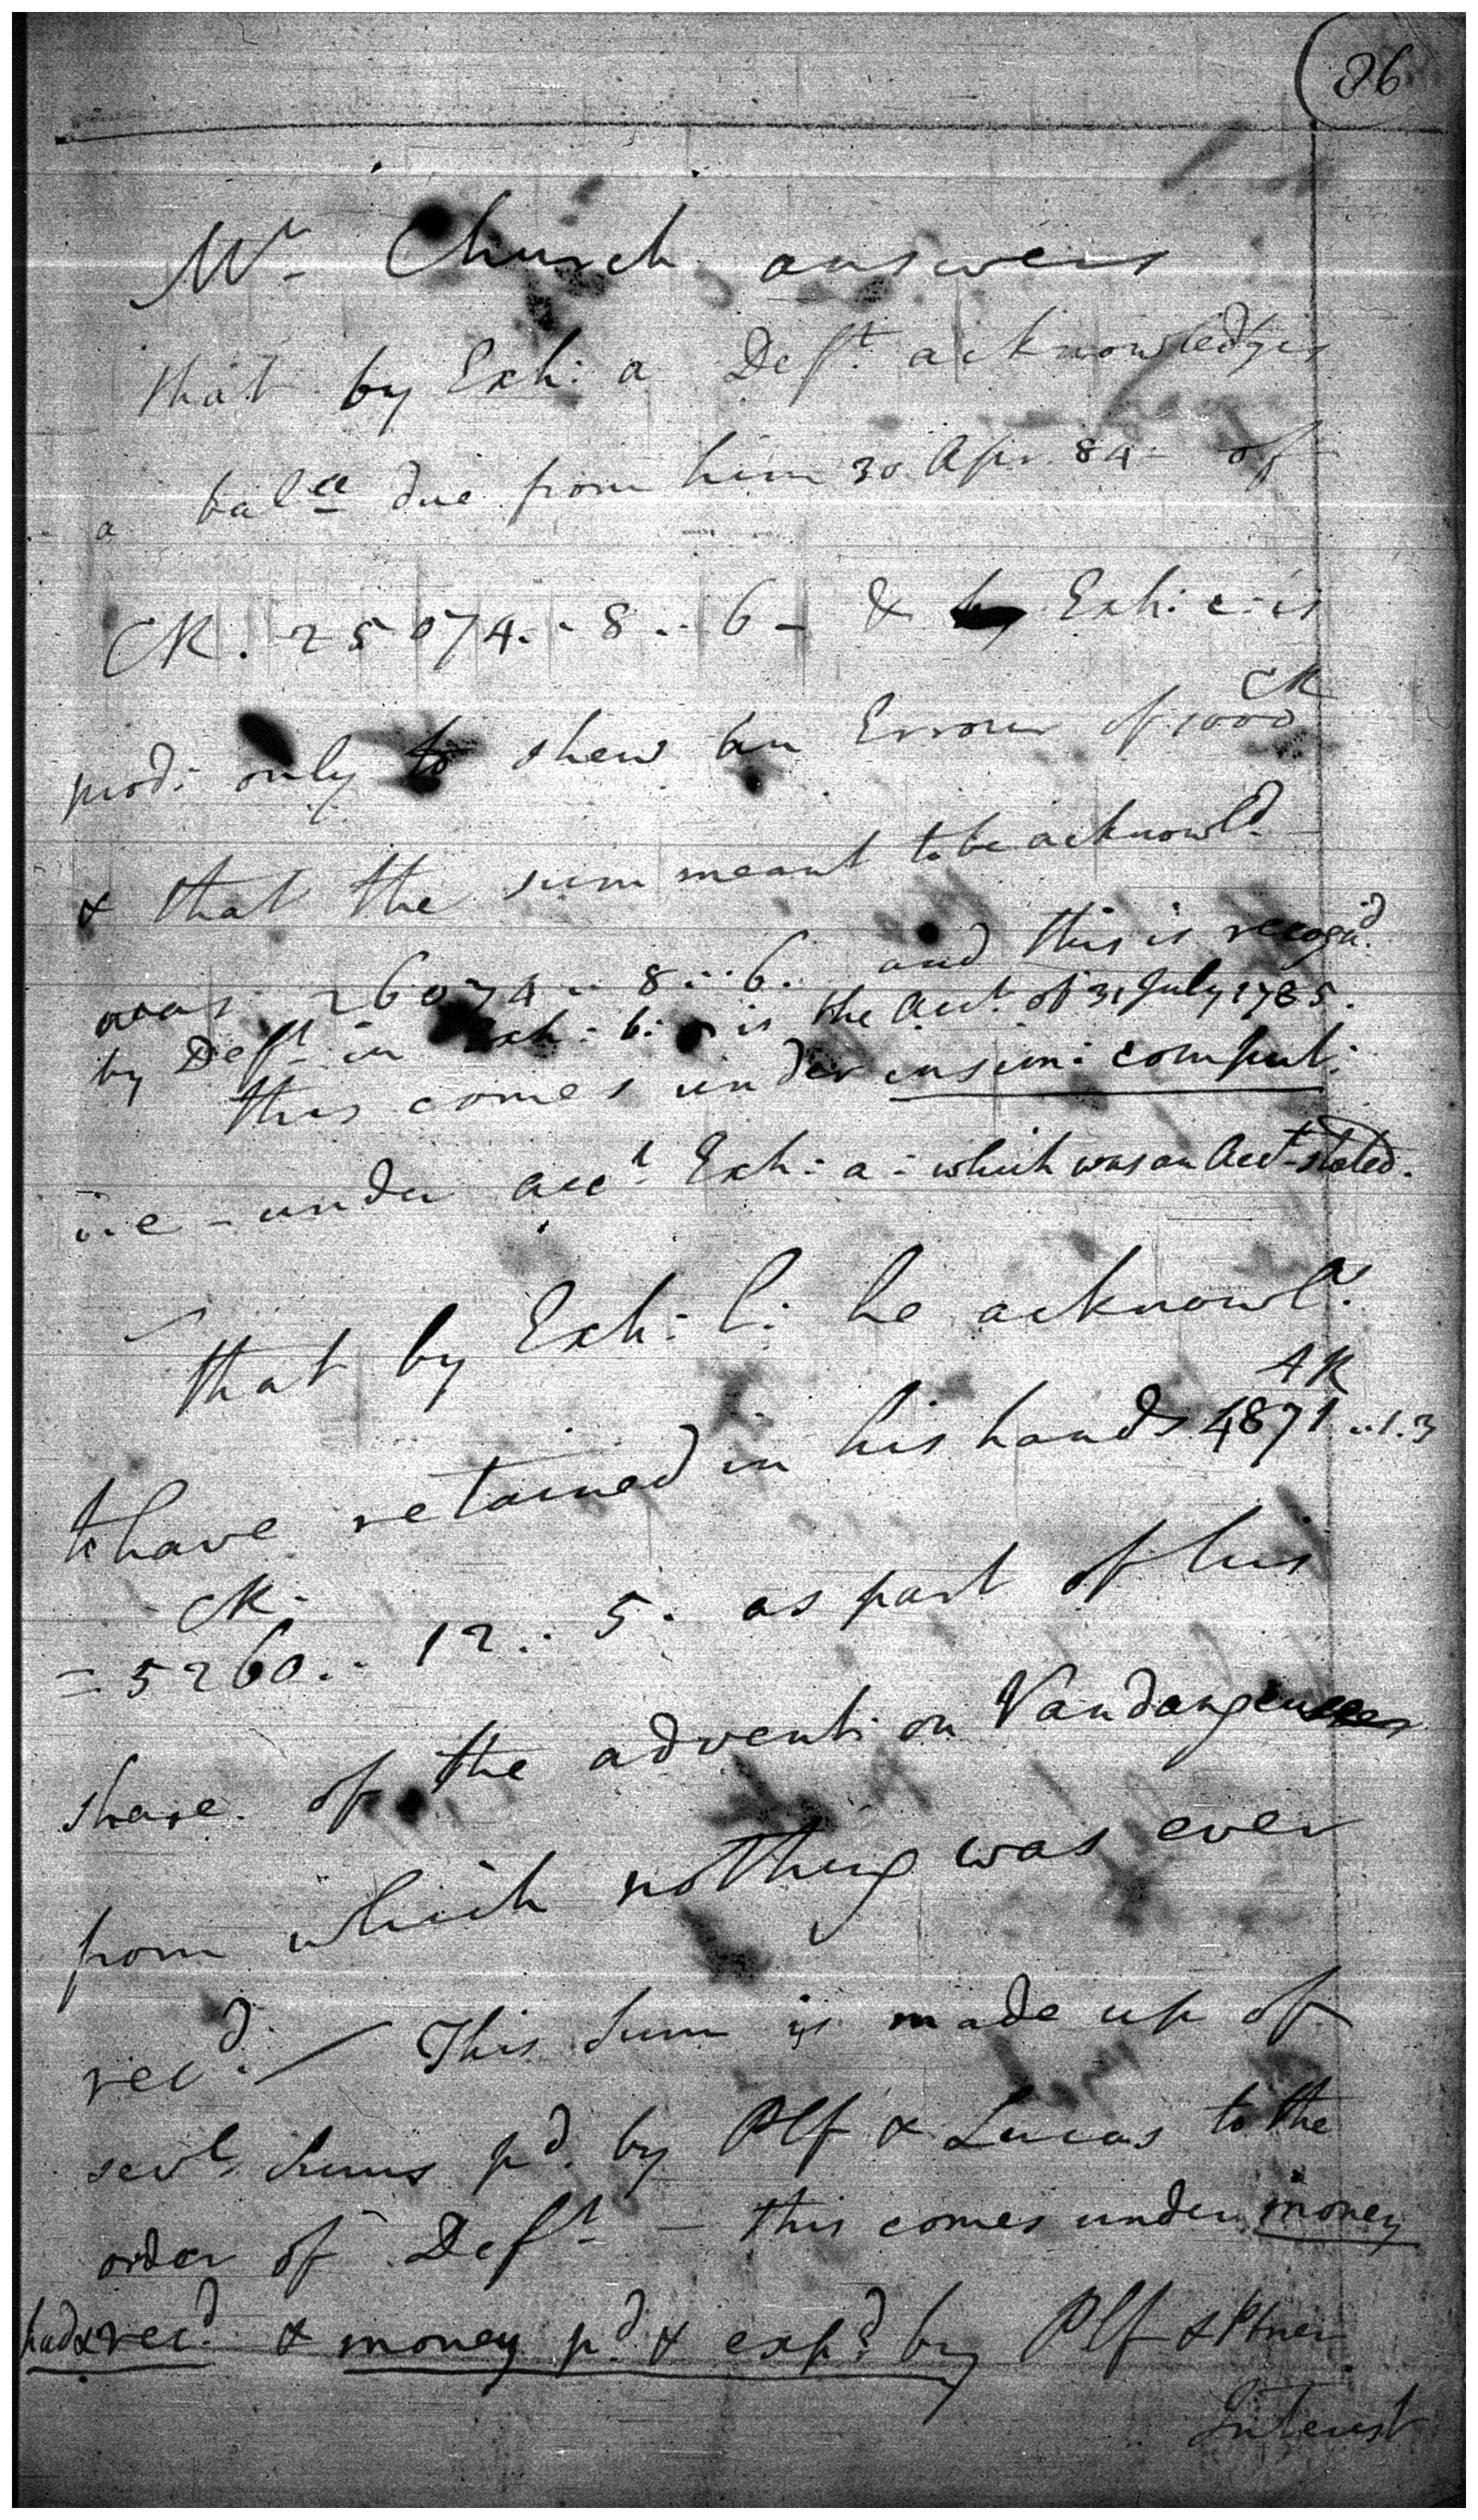 86
Mr Church answers
that by Exh: a Deft. acknowledges
a balce due from him 30 Apr. 84 - of
CR. 25074..8..6 - & by Exh: c: is
prod: only to shew an Errour of 1000 CR
& that the sum meant to be acknowld.
was 26074..8..6. and this is recogd.
by Deft in Exh: b: is the Acct. of 31 July 1785.
this comes under insim: comput:
i:e - under acct. Exh: a: which was an Acct. stated.
That by Exh: l: he acknowls.
AR
to have retained in his hands 4871..1.3
CR.
= 5260..12..5. as part of his
share of the advent: on Vandangeuses
from which nothing was ever
recd. / This sum is made up of
sevl. sums pd. by Plf & Lucas to the
order of Deft - this comes under money
had & recd. & money pd. & expd. by Plf & Ptner
Interest